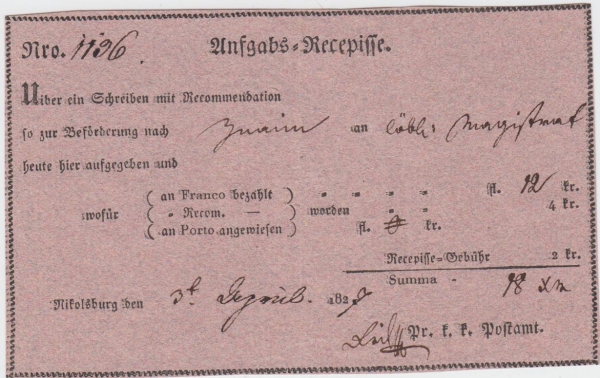 Nro. 1196. Aufgabs-Recepisse.
Uiber ein Schreiben mit Recommendation
so zur Beförderung nach Znaim an löbl: Magistrat
heute hier aufgegeben und
wofür
an Franco bezahlt " " " " fl. 12 kr.
" Recom. — worden " " " " 4 kr.
an Porto angewiesen fl. 0 kr.
Recepisse-Gebühr 2 kr.
Summa - 18 xr
Nikolsburg den 3t April. 182
Pr. k. k. Postamt.